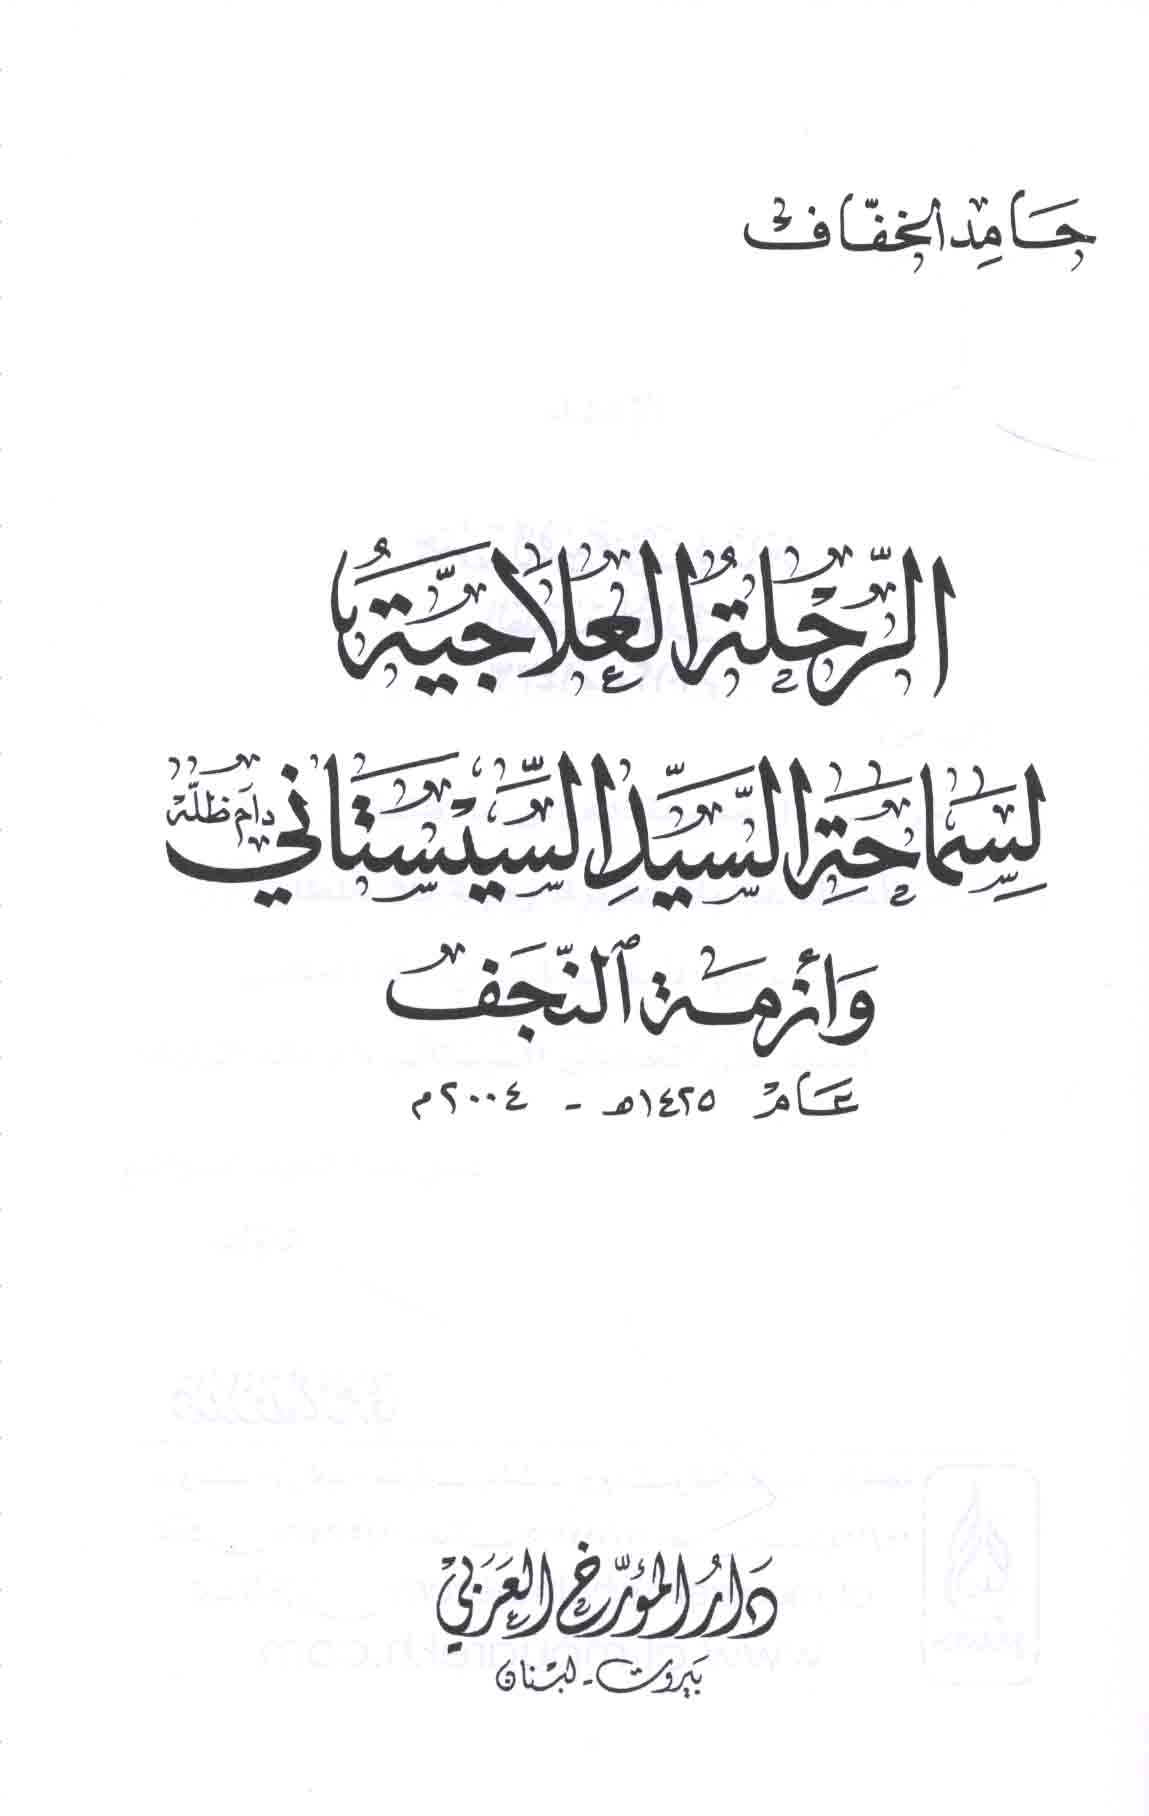 حامد الخفّاف
الرّحلةُ العلاجيّةُ
لسماحةِ السيّدِ السّيستاني دام ظلّه
وأزمة النّجف
عام ١٤٢٥هـ - ٢٠٠٤م
دار المؤرّخ العربي
بيروت - لبنان